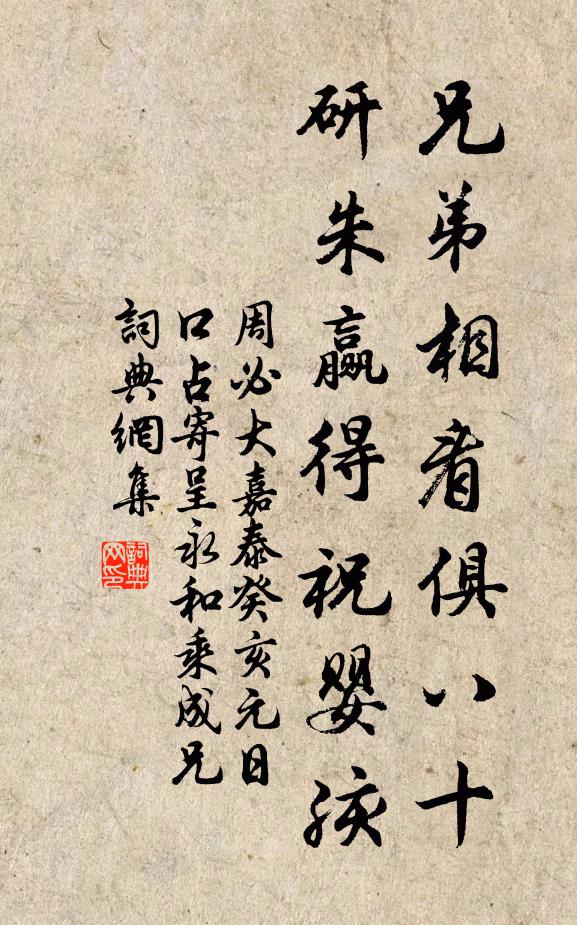 兄弟相看俱八十
研朱贏得祝嬰孩
周必大嘉泰癸亥元日
口占寄呈永和乘成兄
詞典網集
詞典網印